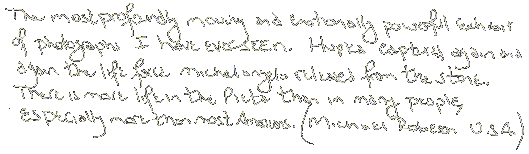 The most profoundly moving and emotionally powerful exhibit
of photographs I have ever seen. Hupka captures again and
again the life force michelangelo released from the stone.
There is more life in the Pieta than in many people,
especially more than most Americans. (Michael Robeson U.S.A.)